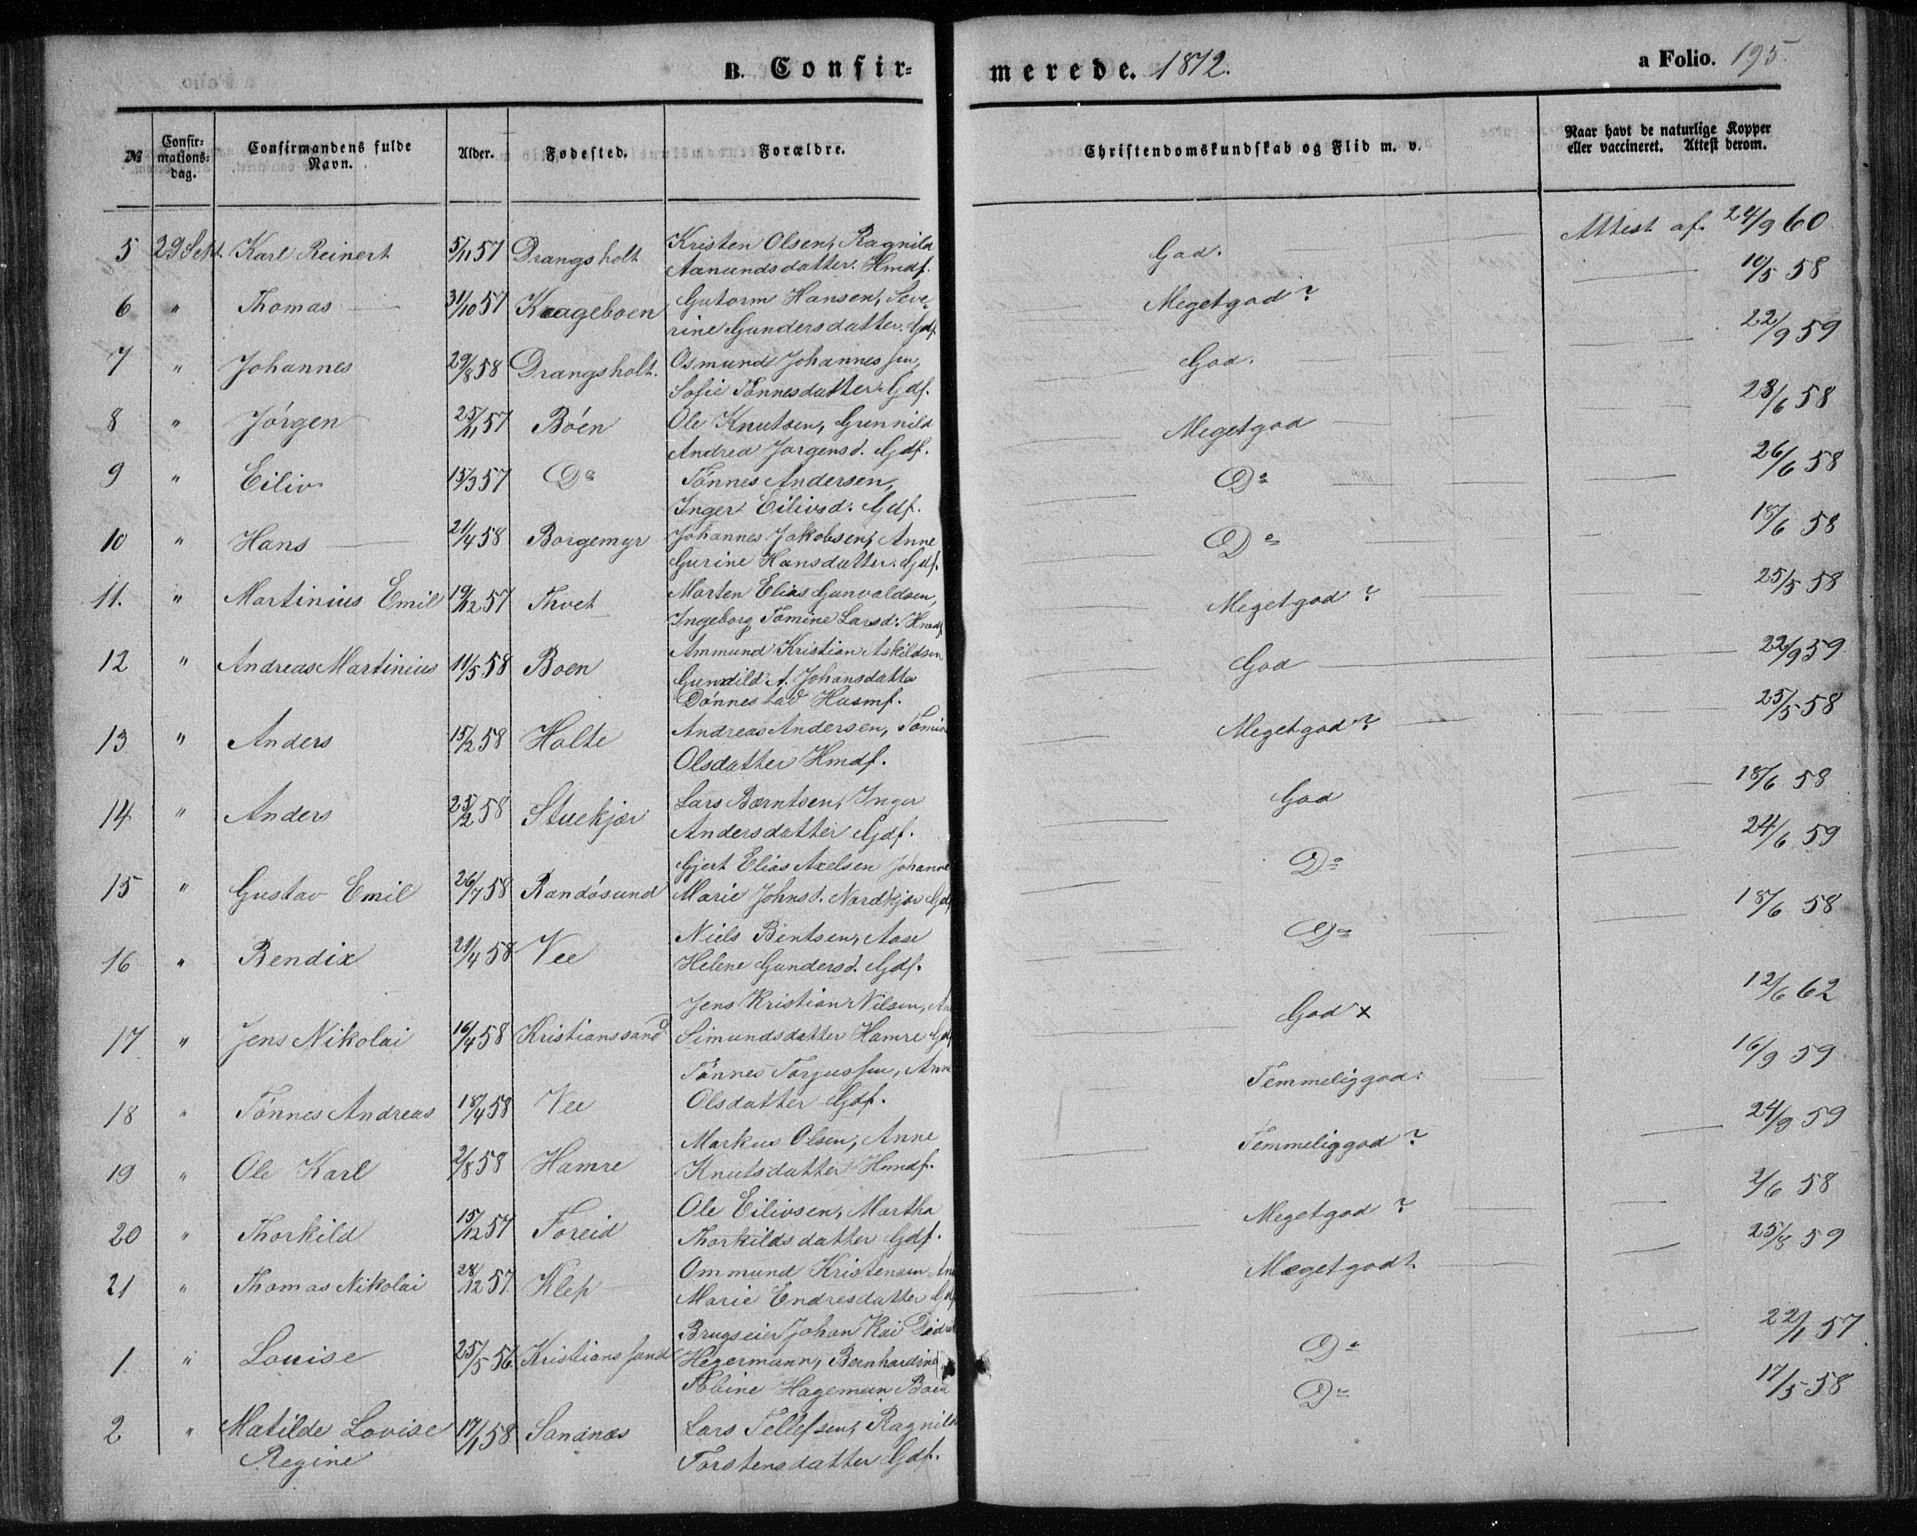 B. Confir- merede. 1872. a Folio. 195
№ Confir-mations-dag. Confirmandens fulde Navn. Alder. Fødested. Forældre. Christendomskundskab og Flid m. v. Naar havt de naturlige Kopper eller vaccineret. Attest derom.
5 29 Sept. Karl Reinert 5/11 57 Drangsholt Kristen Olsen, Ragnild God. Attest af. 24/9 60
Aanundsdatter. Hmdf.
6 " Thomas 31/10 57 Kaageboen Gutorm Hansen, Seve- Megetgod? 10/5 58
rine Gundersdatter. Gdf.
7 " Johannes 29/8 58 Drangsholt. Osmund Johannessen, God. 22/9 59
Sofie Tønnesdatter. Gdf.
8 " Jørgen 25/11 57 Bóen Ole Knutsen, Gunnild Megetgod 28/6 58
Andrea Jørgensd. Gdf.
9 " Eiliv 15/3 57 Do Tønnes Andersen, Do 26/6 58
Inger Eilivsd: Gdf.
10 " Hans 21/4 58 Borgemyr Johannes Jakobsen, Anne Do 18/6 58
Gurine Hansdatter. Gdf.
11. " Martinius Emil 19/12 57 Tvet Morten Elias Gunvaldsen, Megetgod? 25/5 58
Ingeborg Tomine Larsd: Hmdf
12 " Andreas Martinius 11/5 58 Boen Ammund Kristian Askildsen God 22/9 59
Gunnild A. Johansdatter
Dønnestad Husmf.
13 " Anders 15/2 58 Holte Andreas Andersen, Tomine Megetgod? 25/5 58
Olsdatter Hmdf.
14 " Anders 25/2 58 Stuekjær Lars Berntsen, Inger God 18/6 58
Andersdatter Gdf.
15 " Gustav Emil 26/7 58 Randøsund Gjert Elias Axelsen Johanne Do 24/6 59
Marie Johnsd. Nordkjær Gdf
16 " Bendix 21/4 58 Vee Niels Bentsen, Aase Do 18/6 58
Helene Gundersd. Gdf.
17 " Jens Nikolai 16/4 58 Kristianssand Jens Kristian Nilsen, An God x 12/6 62
Simundsdatter Hamre Gdf
18 " Tønnes Andreas 18/4 58 Vee Tønnes Torjussen, Anne Temmeliggod: 16/9 59
Olsdatter Gdf.
19 " Ole Karl 2/8 58 Hamre Markus Olsen, Anne Temmeliggod? 24/9 59
Knutsdatter Hmdf.
20 " Thorkild 15/12 57 Foreid Ole Eilivsen, Martha Megetgod? 2/6 58
Thorkildsdatter Gdf.
21 " Thomas Nikolai 28/12 57 Klep Ommund Kristensen An Megetgodt 25/8 59
Marie Endresdatter Gdf
1. " Louise 25/5 56 Kristianssand Brugseier Johan Kai Didrik Do 22/1 57
Hegermann, Bernhardine
Tobine Hageman Boen
2 " Matilde Lovise 17/1 58 Sandnæs Lars Tellefsen, Ragnild Do 17/5 58
Regine Torstensdatter Gdf.